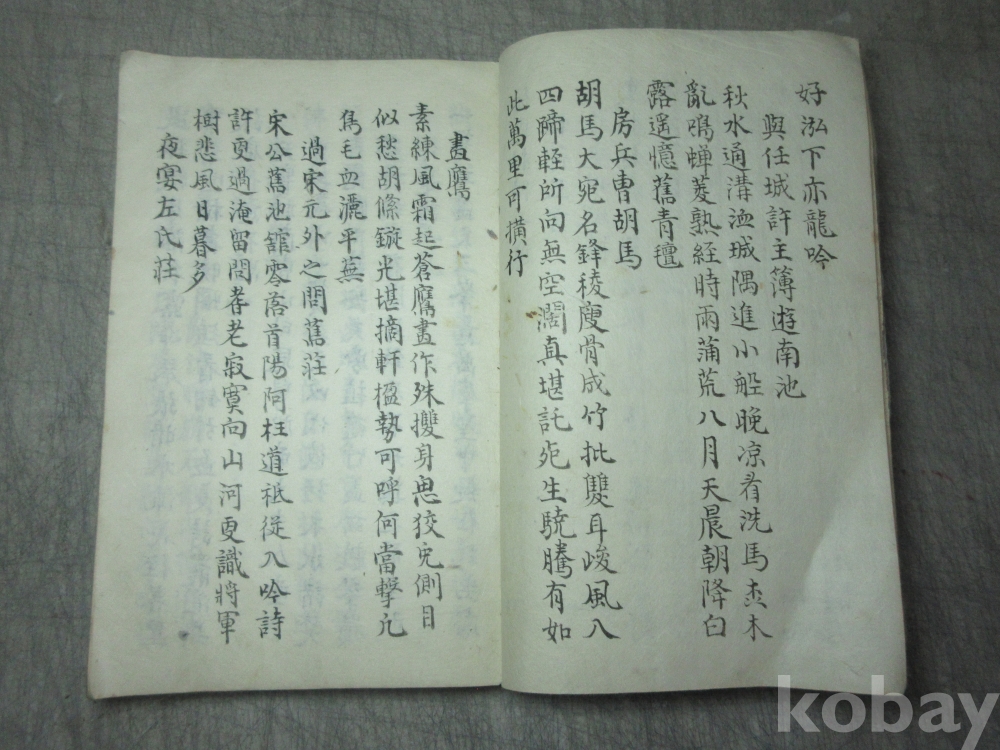 好泓下亦龍吟
與任城許主簿遊南池
秋水通溝洫城隅進小船晚凉看洗馬森木
亂鳴蟬菱熟經時雨蒲荒八月天晨朝降白
露遥憶舊青氊
房兵曹胡馬
胡馬大宛名鋒稜瘦骨成竹批雙耳峻風入
四蹄輕所向無空濶真堪託死生驍騰有如
此萬里可横行
畫鷹
素練風霜起蒼鷹畫作殊㩳身思狡兎側目
似愁胡絛鏇光堪摘軒楹勢可呼何當擊凡
鳥毛血灑平蕪
過宋元外之問舊莊
宋公舊池舘零落首陽阿枉道秪從入吟詩
許更過淹留問耆老寂寞向山河更識將軍
樹悲風日暮多
夜宴左氏莊
kobay